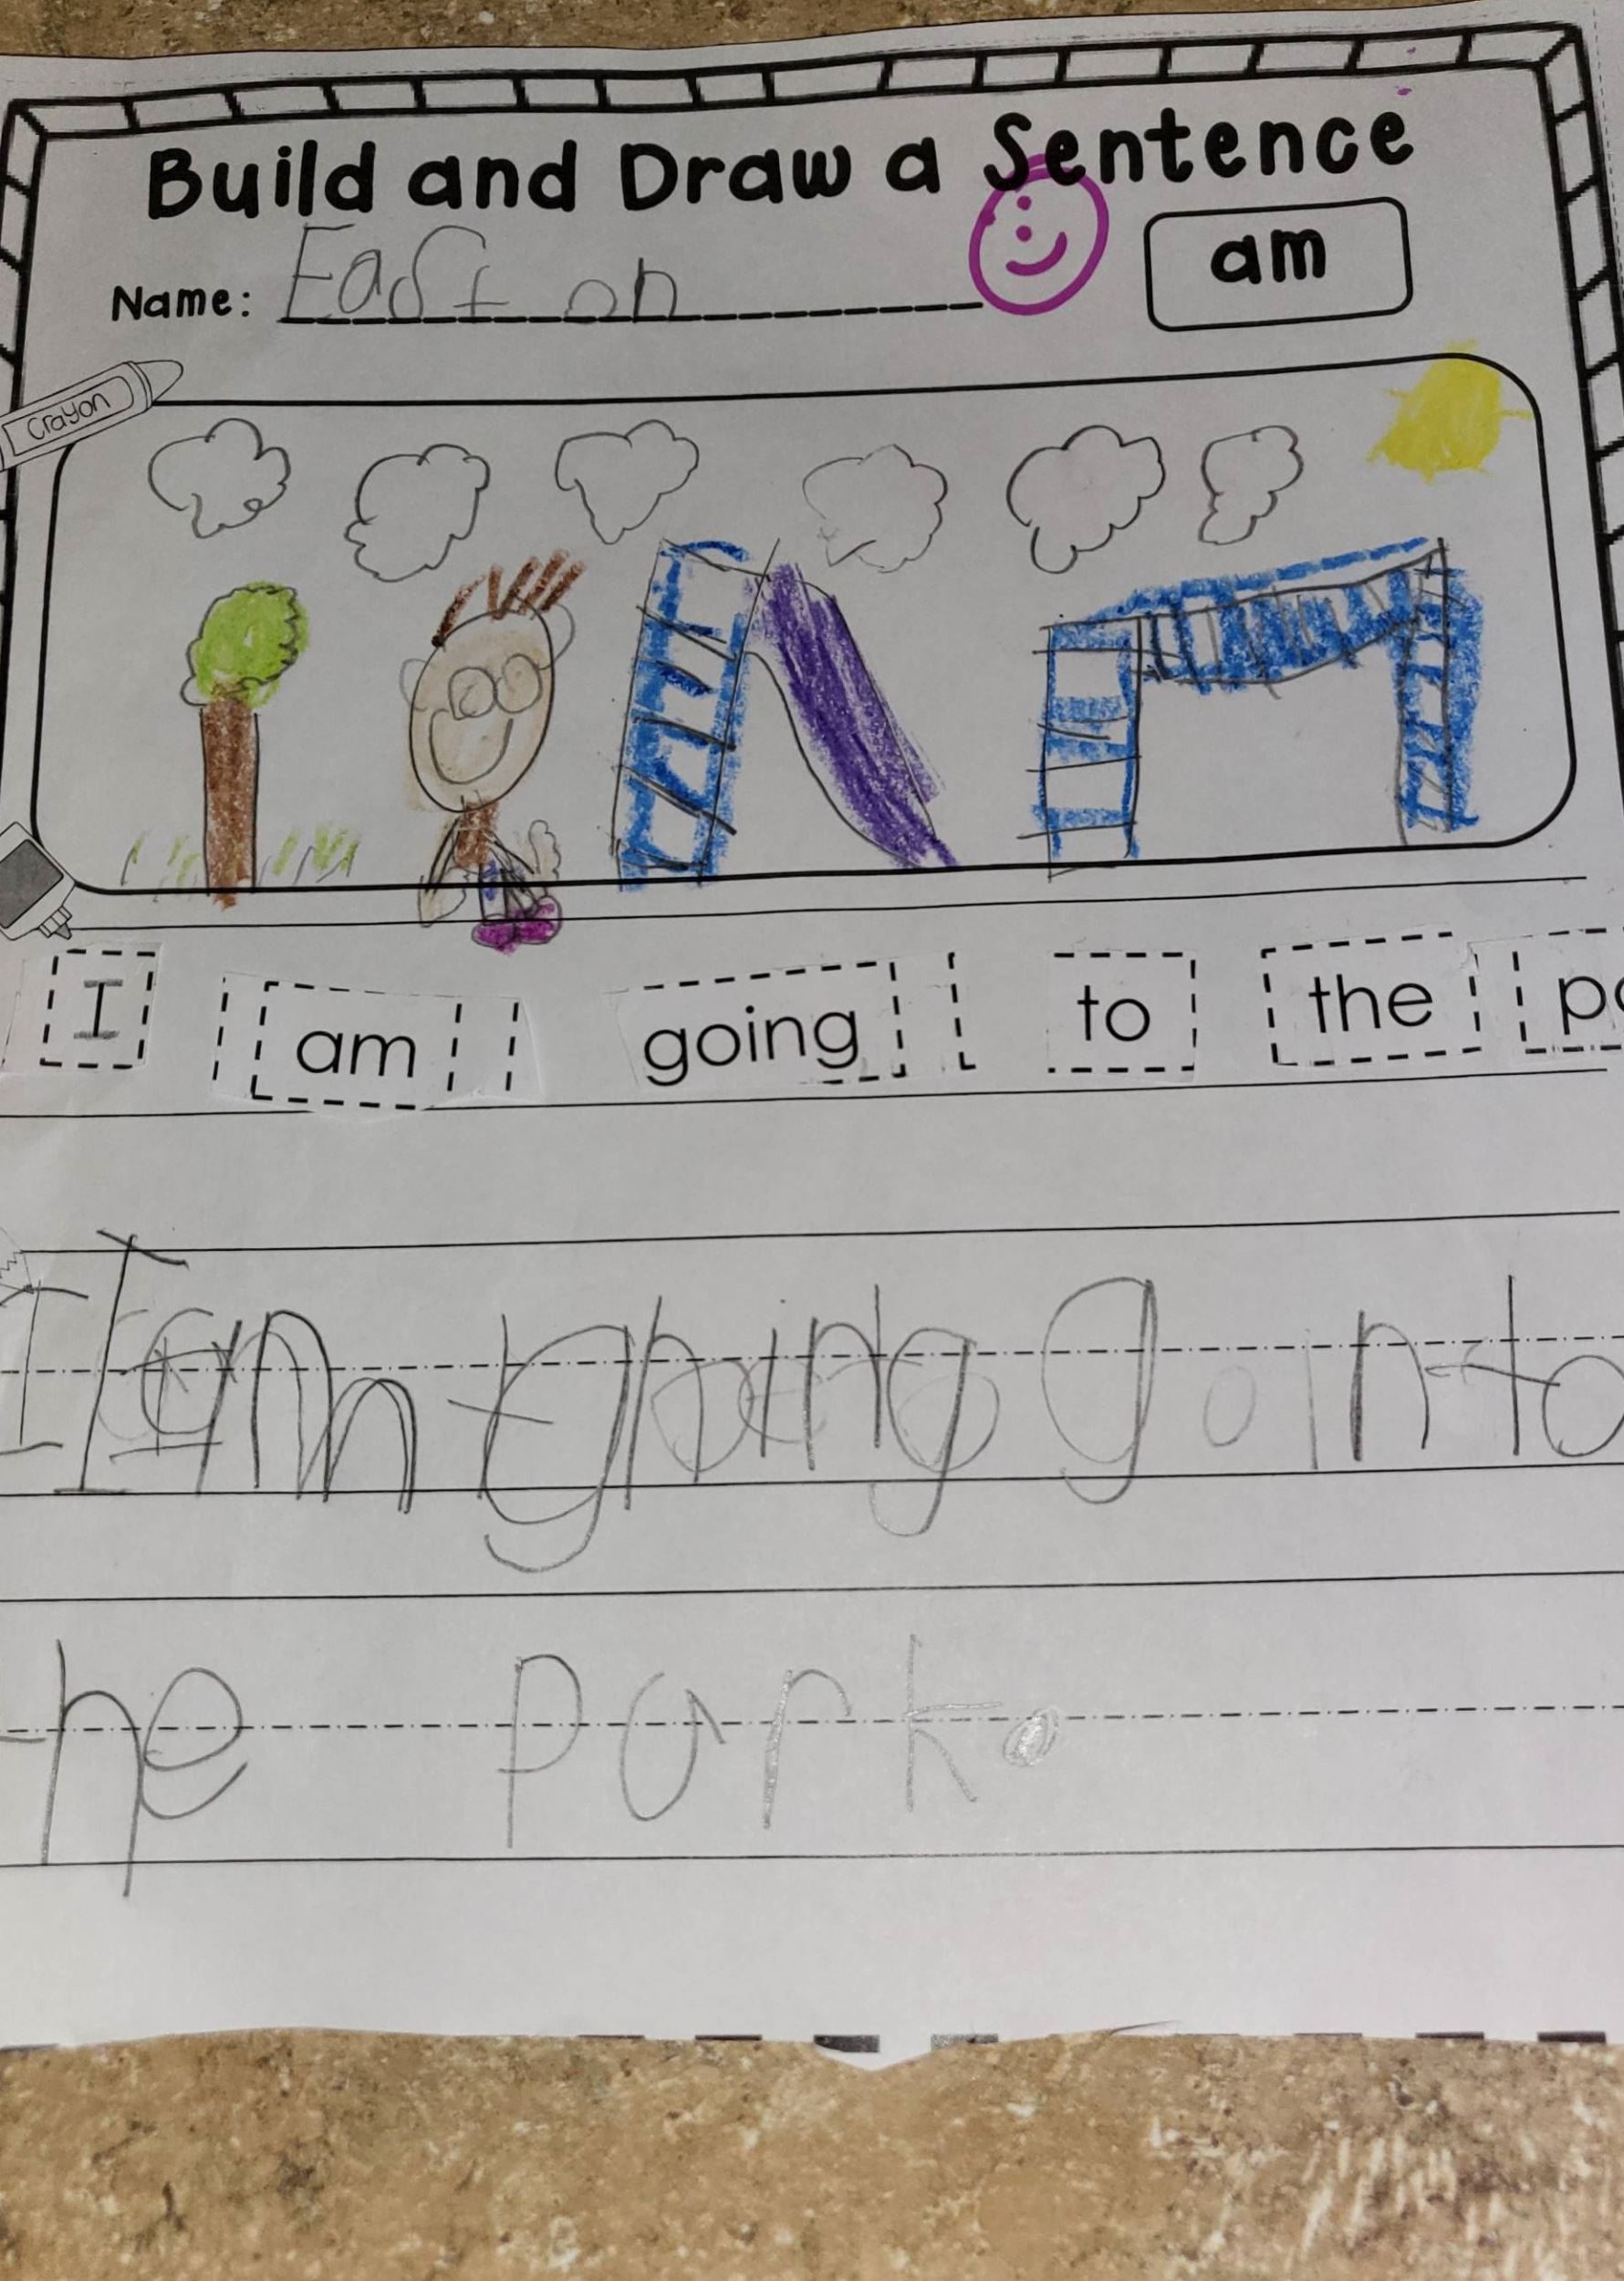 Build and Draw a Sentence
Name: Easton
am
Crayon
I am going to the
I am going goin to
he park.